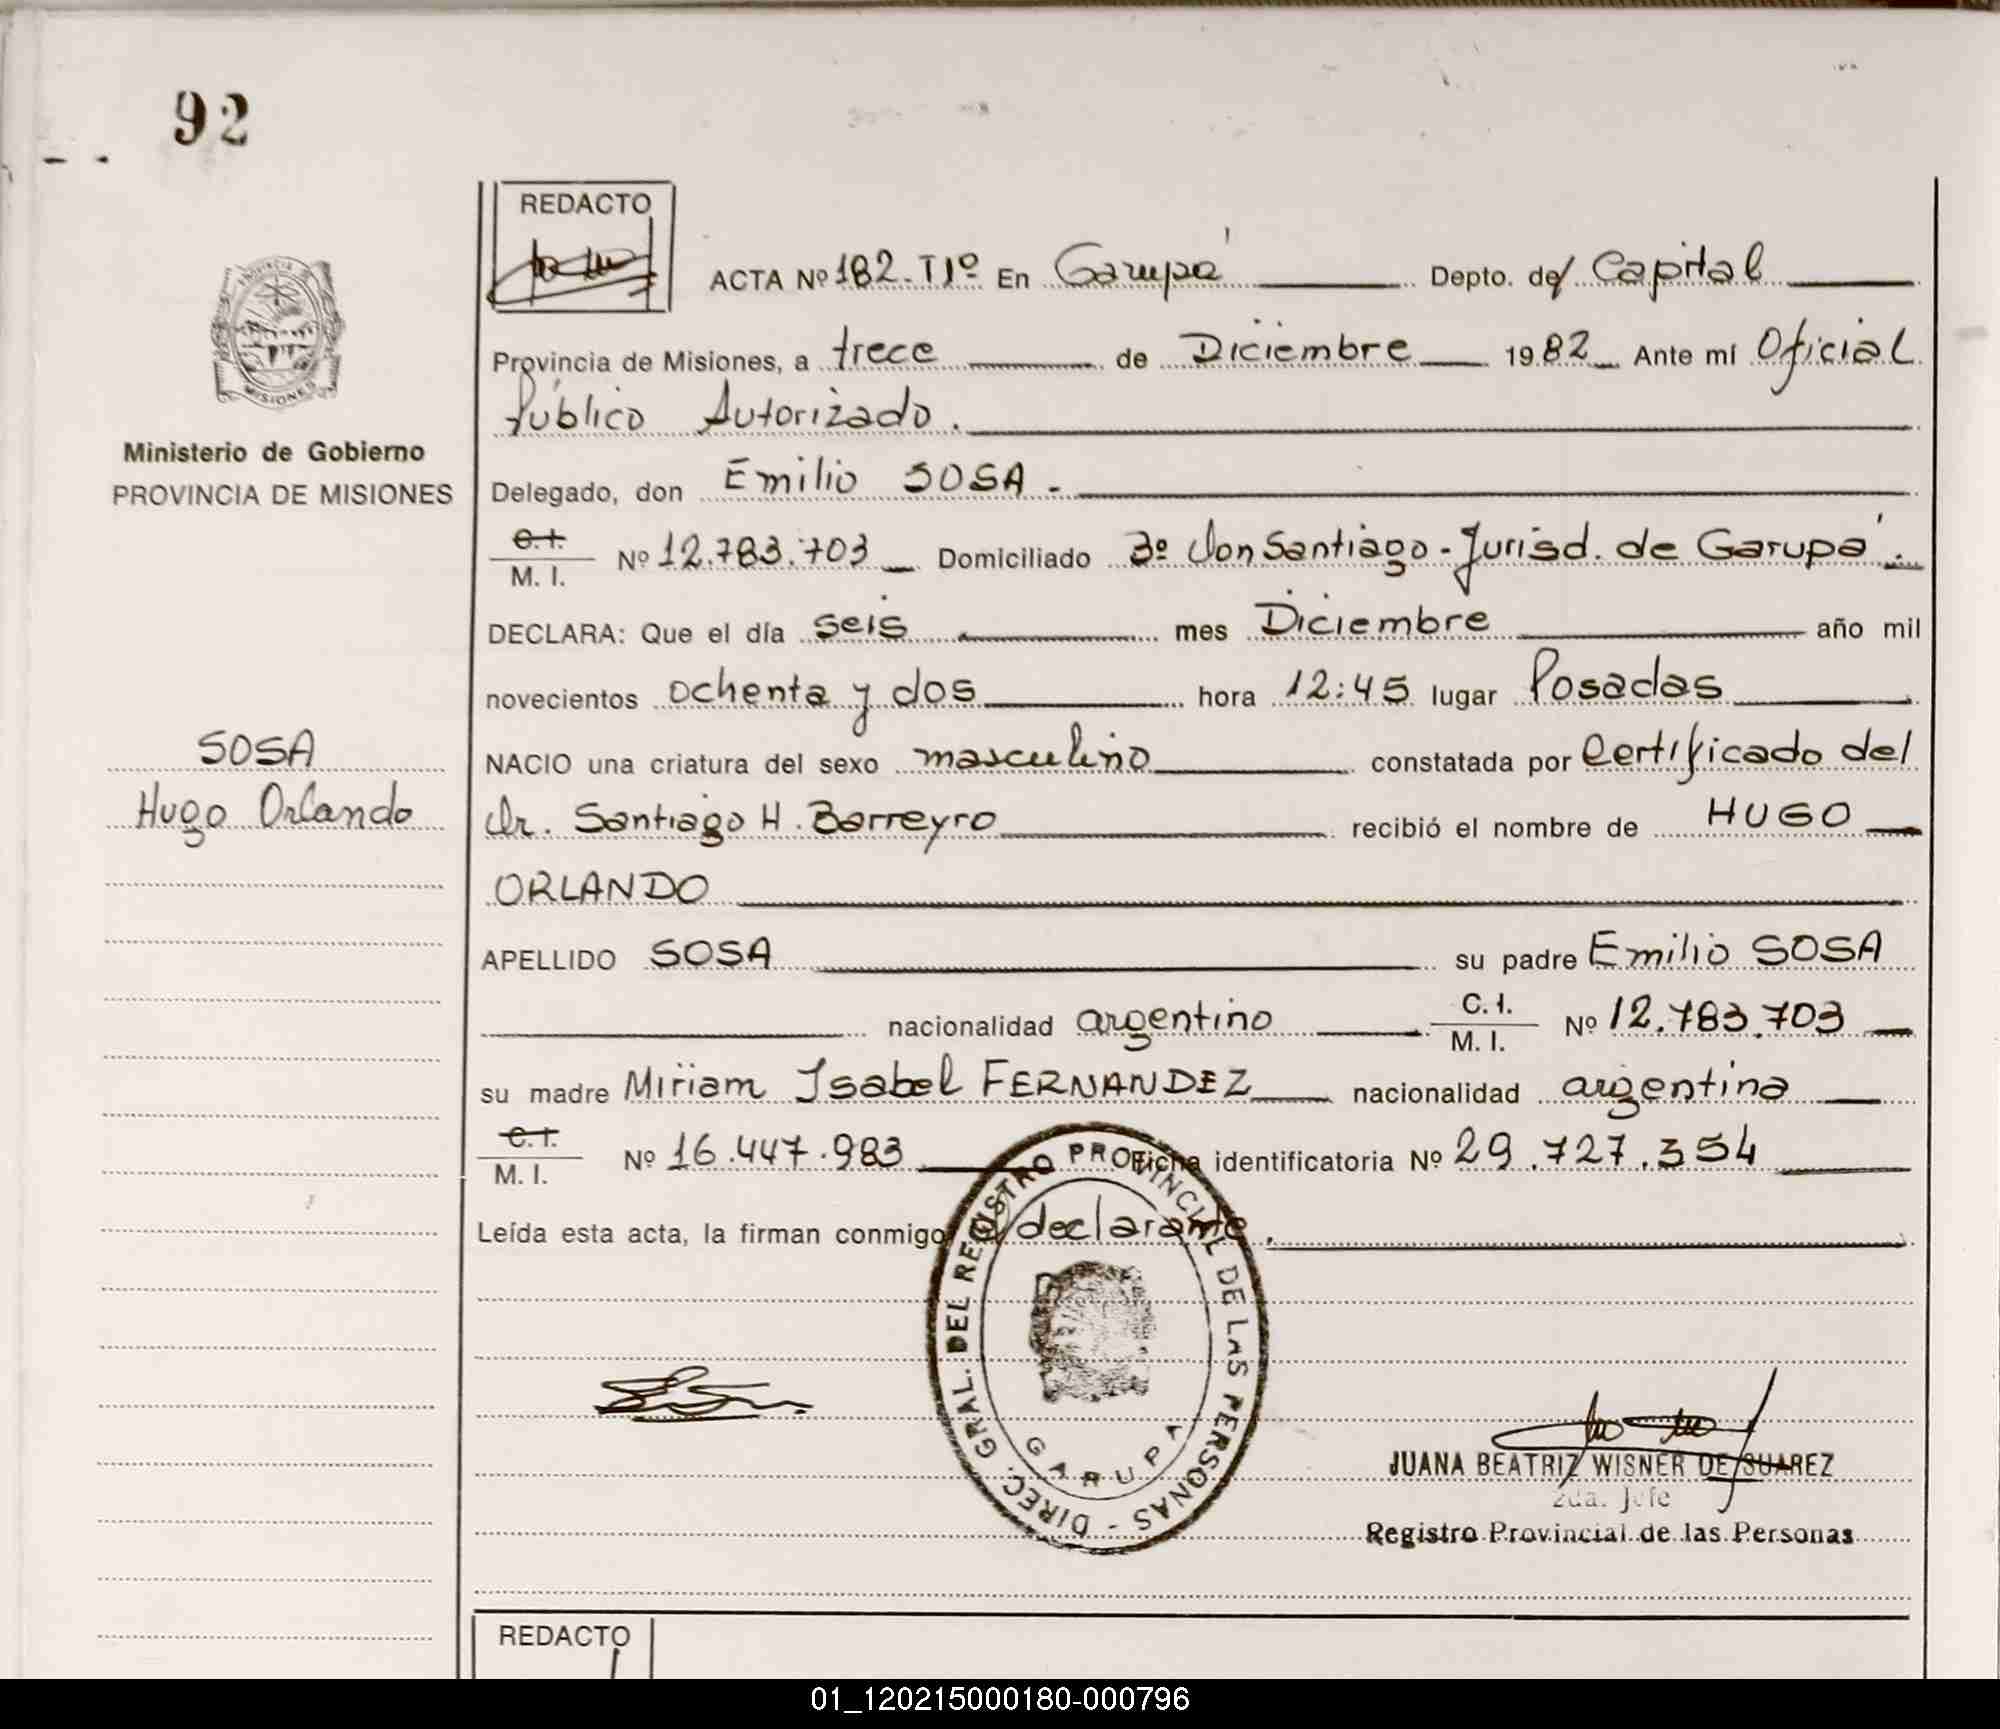 92
REDACTO
ACTA Nº 182. TIº En Garupá Depto. de Capital
Provincia de Misiones, a trece de Diciembre 1982 Ante mí Oficial
Público Autorizado.
PROVINCIA
MISIONES
Ministerio de Gobierno
PROVINCIA DE MISIONES
Delegado, don Emilio SOSA -
C. I.
M. I.
Nº 12.783.703 Domiciliado 3º Don Santiago - Jurisd. de Garupá.
DECLARA: Que el día seis mes Diciembre año mil
novecientos ochenta y dos hora 12:45 lugar Posadas
SOSA
Hugo Orlando
NACIO una criatura del sexo masculino constatada por Certificado del
Dr. Santiago H. Barreyro recibió el nombre de HUGO
ORLANDO
APELLIDO SOSA su padre Emilio SOSA
nacionalidad argentino C. I. M. I. Nº 12.783.703
su madre Miriam Isabel FERNANDEZ nacionalidad argentina
C. I.
M. I.
Nº 16.447.983 Ficha identificatoria Nº 29.727.354
Leída esta acta, la firman conmigo declarante.
DIREC. GRAL. DEL REGISTRO PROVINCIAL DE LAS PERSONAS -
GARUPA
JUANA BEATRIZ WISNER DE SUAREZ
2da. Jefe
Registro Provincial de las Personas
REDACTO
01_120215000180-000796